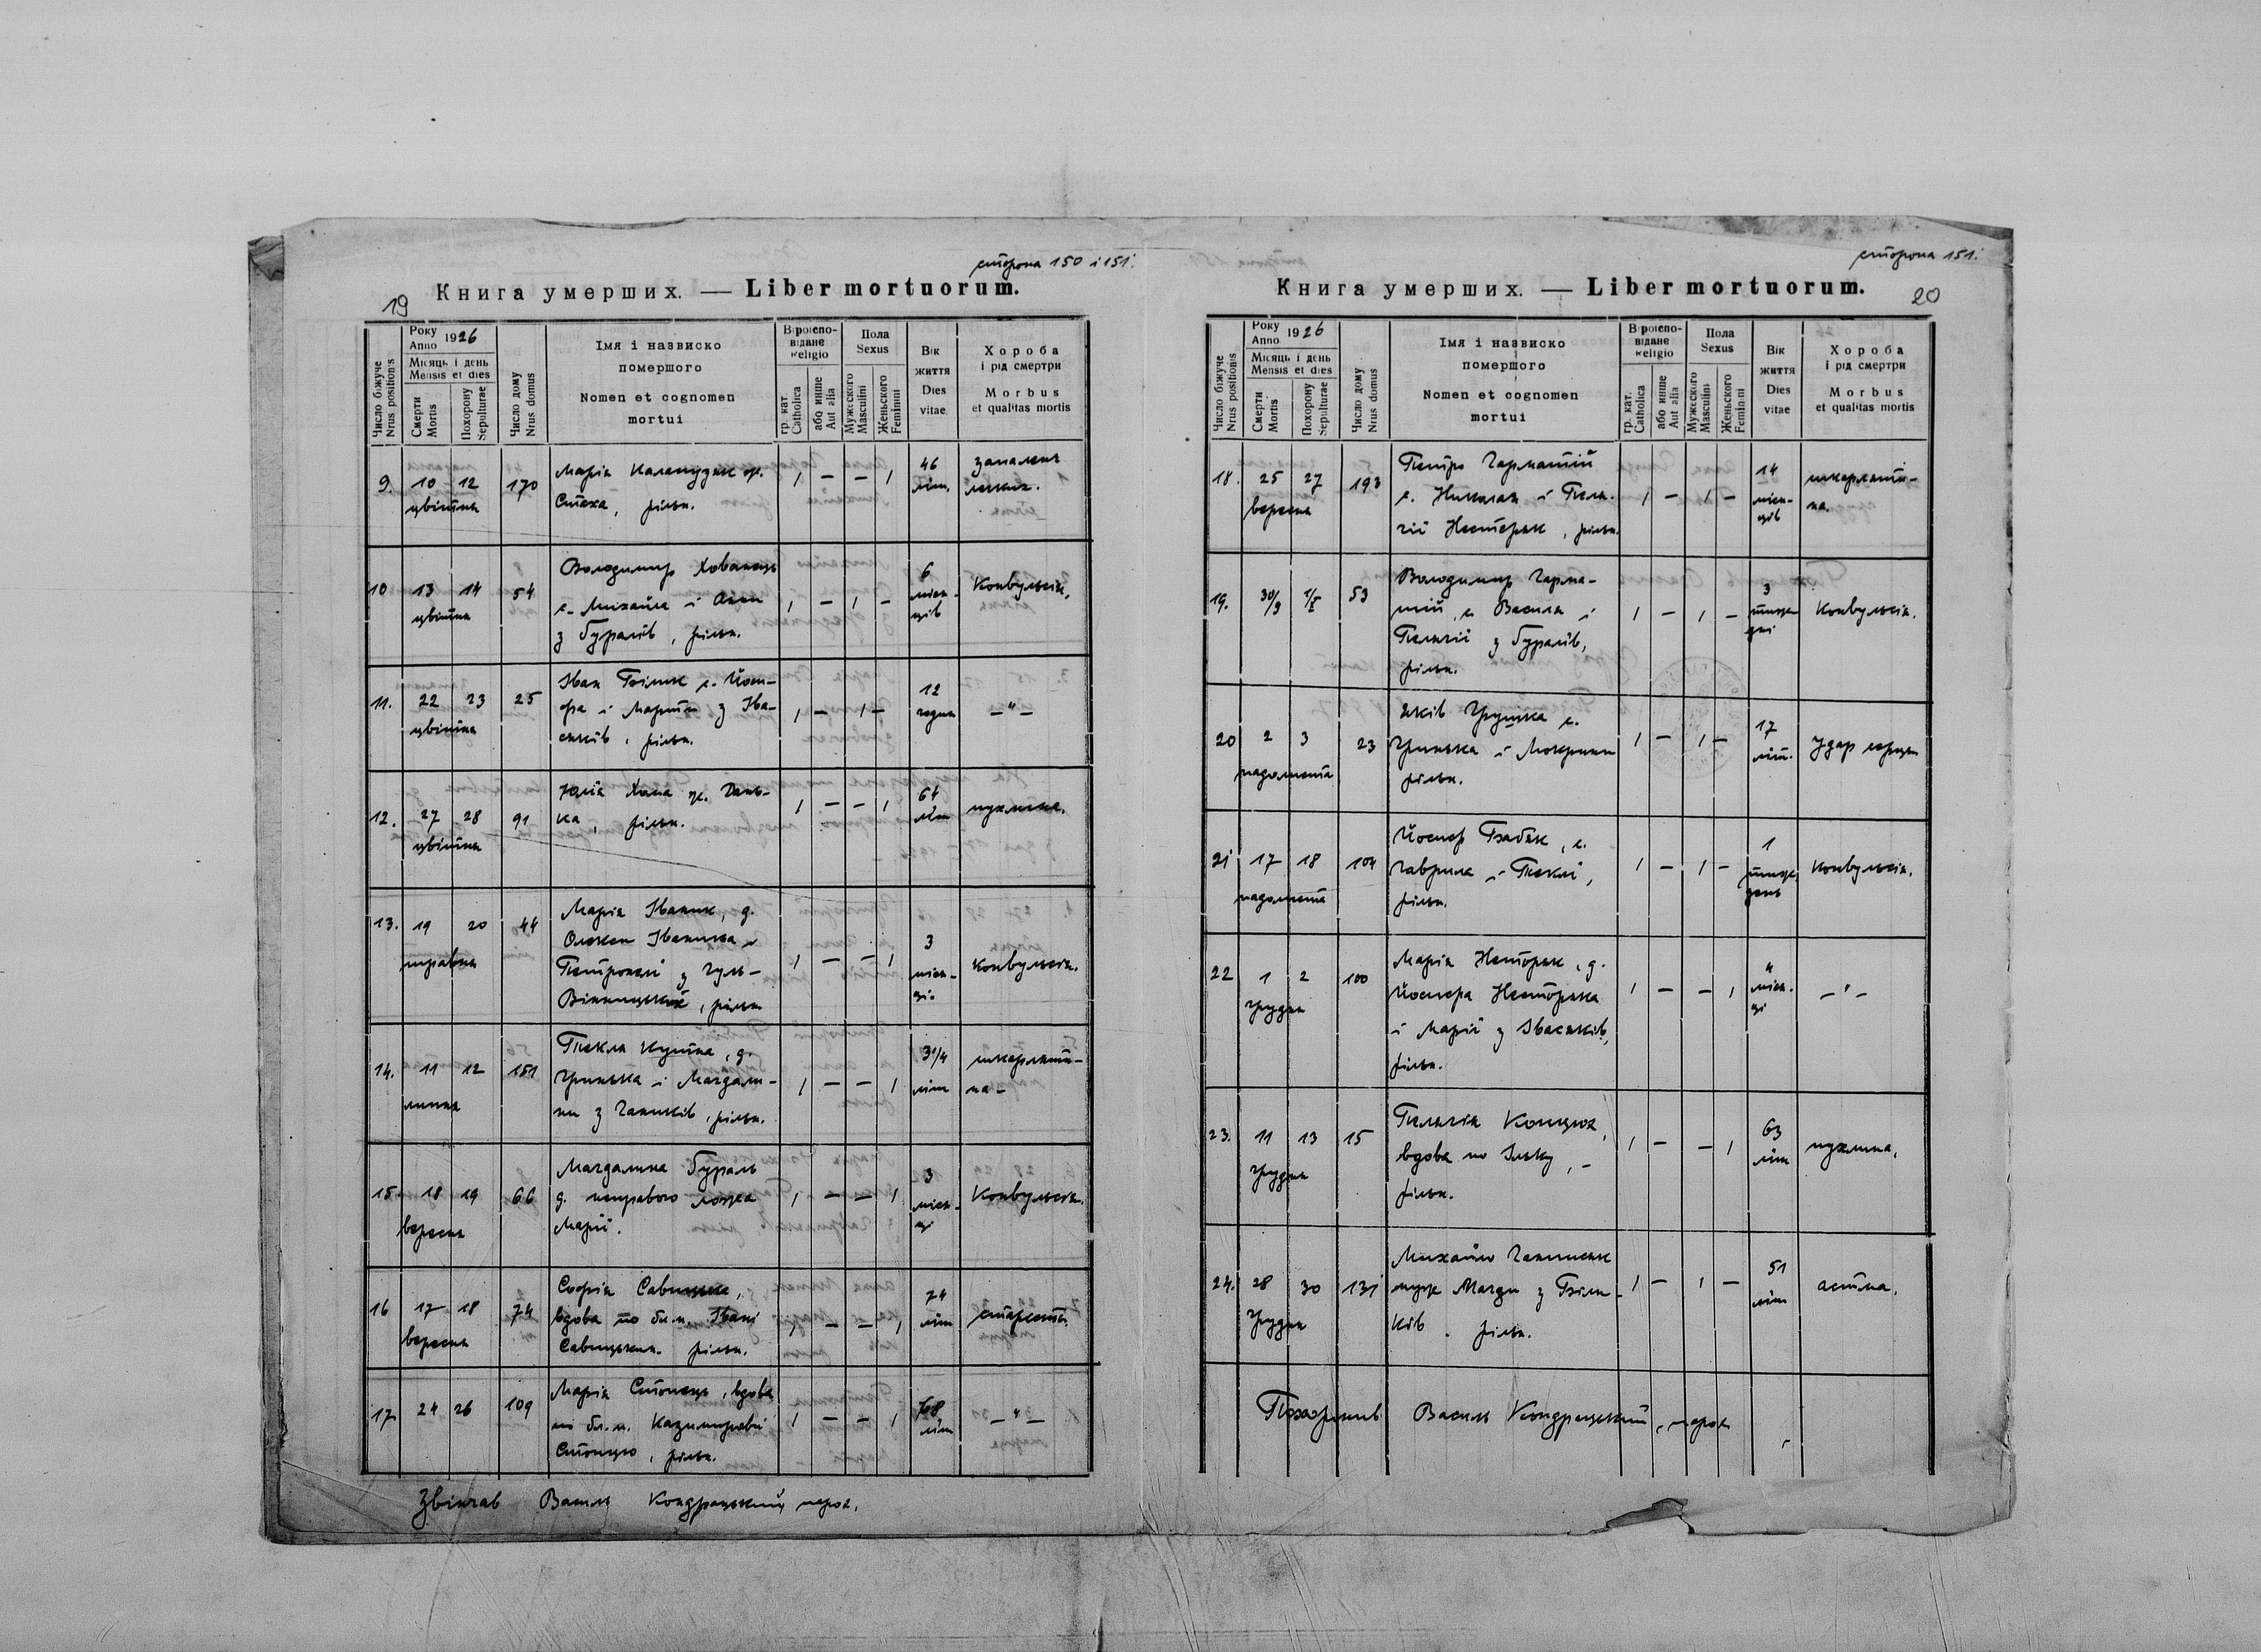 сторона 150 і 151.
19
Книга умерших. — Liber mortuorum.
Число біжуче Nrus positionis
Року Anno 1926
Місяць і день Mensis et dies
Смерти Mortis
Похорону Sepulturae
Число дому Nrus domus
Імя і назвиско
помершого
Nomen et cognomen
mortui
Віроіспо-
відане
Religio
гр. кат. Catholica
або инше Aut alia
Пола
Sexus
Мужеского Masculini
Женьского Feminini
Вік
життя
Dies
vitae
Хороба
і рід смертри
Morbus
et qualitas mortis
9. 10 12 цвітня 170
Марія
Стаха, рільн.
1 — — 1 46 літ. запалень легких.
10 13 14 цвітня 54
Володимир Хованець
с. Михайла і Анни
з Буралів, рільн.
1 — 1 — 6 міся-ців Конвульсія.
11. 22 23 цвітня 25
Іван Білик с. Йоси-
фа і Марти з Іва-
сиків, рільн.
1 — 1 — 12 годин — " —
12. 27 28 цвітня 91
Юлія Хома
ка, рільн.
1 — — 1 64 літ пухлина.
13. 19 20 травня 44
Марія Іваник, д.
Олекси Іваника і
Петронелі з Гуль-
Вінницької, рільн.
1 — — 1 3 міся-ці. конвульсія.
14. 11 12 липня 151
Текля Купна, д.
Гринька і Магдали-
ни з Гаників, рільн.
1 — — 1 3 1/4 літ шкарляти-на -
15. 18 19 вересня 66
Магдалина Бураль
д. неправого ложа
Марії.
1 — — 1 3 міся-ці Конвульсія.
16 17 18 вересня 74
Софія Савицька,
вдова по бл. п. Івані
Савицькім. рільн.
1 — — 1 74 літ старість.
17 24 26 109
Марія Стонець, вдова
по бл. п. Казимирові
Стонцю, рільн.
1 — — 1 68 літ — " —
Звінчав Василь Кондрацький парох.
сторона 151.
Книга умерших. — Liber mortuorum.
20
Число біжуче Nrus positionis
Року Anno 1926
Місяць і день Mensis et dies
Смерти Mortis
Похорону Sepulturae
Число дому Nrus domus
Імя і назвиско
помершого
Nomen et cognomen
mortui
Віроіспо-
відане
Religio
гр. кат. Catholica
або инше Aut alia
Пола
Sexus
Мужеского Masculini
Женьского Feminini
Вік
життя
Dies
vitae
Хороба
і рід смертри
Morbus
et qualitas mortis
18. 25 27 вересня 193
Петро Гарматій
с. Николая і Пела-
гії Несторяк, рільн.
1 — 1 — 14 міся-ців шкарляти-на.
19. 30/9 1/X 53
Володимир Гарма-
тій, с. Василя і
Пелагії з Буралів,
рільн.
1 — 1 — 3 тижд-ні Конвульсія.
20 2 3 падолиста 23
Яків Грушка с.
Гринька і Мокрини
рільн.
1 — 1 — 17 літ. Удар серця
21 17 18 падолиста 104
Йосиф Бабяк, с.
Гаврила і Теклі,
рільн.
1 — 1 — 1 тиж-день Конвульсія.
22 1 2 грудня 100
Марія Несторяк, д.
Йосифа Несторяка
і Марії з Івасиків,
рільн.
1 — — 1 4 міся-ці — " —
23. 11 13 грудня 15
Пелагія Концюх,
вдова по Ільку, -
рільн.
1 — — 1 63 літ пухлина.
24. 28 30 грудня 131
Михайло
муж Магди з Біли-
ків. рільн.
1 — 1 — 51 літ астма.
Похоронив Василь Кондрацький, парох